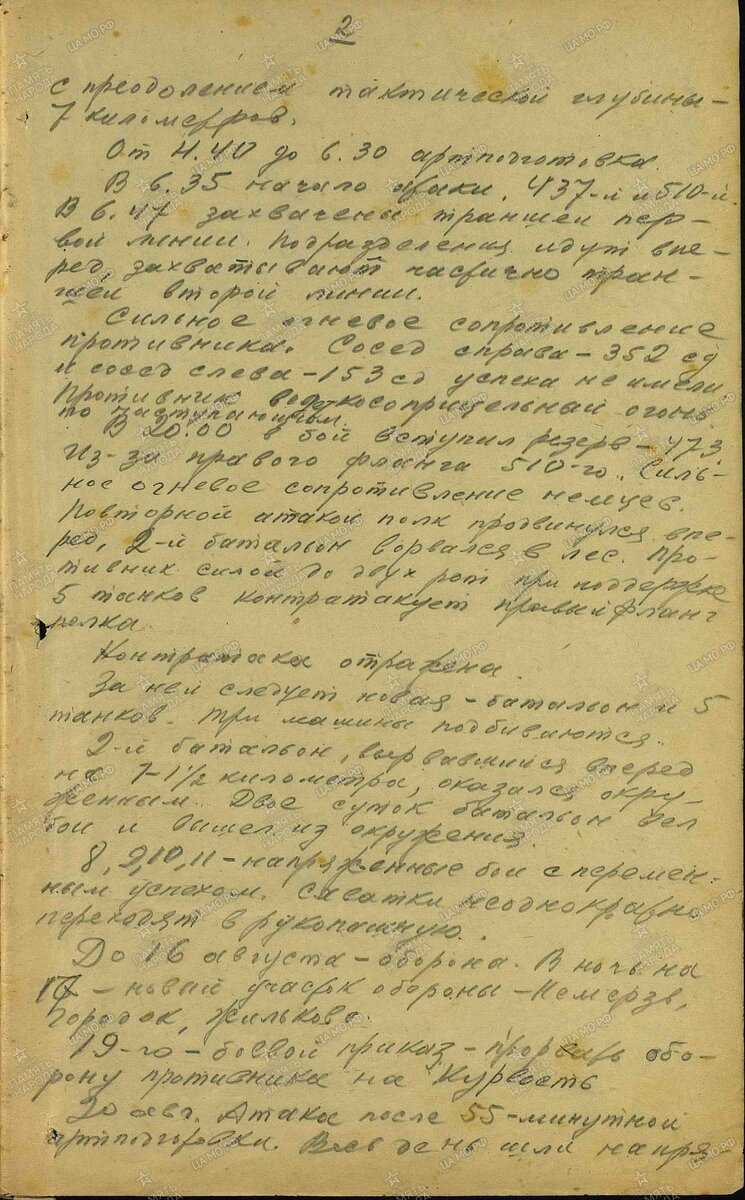 2
с преодолением тактической глубины –
7 километров.
От 4.40 до 6.30 артподготовка.
В 6.35 начало атаки. 437-й и 510-й.
В 6.47 захвачены траншеи пер-
вой линии. Подразделения идут впе-
ред, захватывают частично тран-
шеи второй линии.
Сильное огневое сопротивление
противника. Сосед справа – 352 сд
и сосед слева – 153 сд успеха не имели
Противник ведет косоприцельный огонь
по наступающим.
В 20.00 в бой вступил резерв – 473
Из-за правого фланга 510-го. Силь-
ное огневое сопротивление немцев.
Повторной атакой полк продвинулся впе-
ред, 2-й батальон ворвался в лес. Про-
тивник силой до двух рот при поддержке
5 танков контратакует правый фланг
полка.
Контратака отражена.
За ней следует новая – батальон и 5
танков. Три машины подбиваются.
2-й батальон, вырвавшийся вперед
на 1–1½ километра, оказался окру-
женным. Двое суток батальон вел
бои и вышел из окружения.
8, 9, 10, 11 – напряженные бои с перемен-
ным успехом. Схватки неоднократно
переходят в рукопашную.
До 16 августа – оборона. В ночь на
17 – новый участок обороны – Немерзь,
Городок, Жильково.
19-го – боевой приказ – прорвать обо-
рону противника на
20 авг. Атака после 55-минутной
артподготовки. Весь день шли напря-